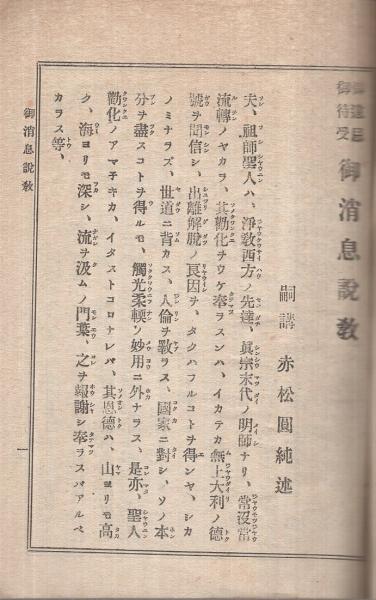 御遠忌
御待受
御消息説教
嗣講　赤松圓純述
夫、祖師聖人ハ、淨教西方ノ先達、眞宗末代ノ明師ナリ、常沒常
流轉ノヤカラ、其勸化ヲウケ奉ラスンハ、イカテカ無上大利ノ德
號ヲ聞信シ、出離解脫ノ良因ヲ、タクハフルコトヲ得ンヤ、シカ
ノミナラズ、世道ニ背カス、人倫ヲ敎ラス、國家ニ對シ、ソノ本
分ヲ盡スコトヲ得ルモ、觸光柔輭ノ妙用ニ外ナラス、是亦、聖人
勸化ノアマチキカ、イタストコロナレバ、其恩德ハ、山ヨリモ高
ク、海ヨリモ深シ、流ヲ汲ムノ門葉、之ヲ報謝シ奉ラスバアルベ
カラス等、
御消息説敎
一